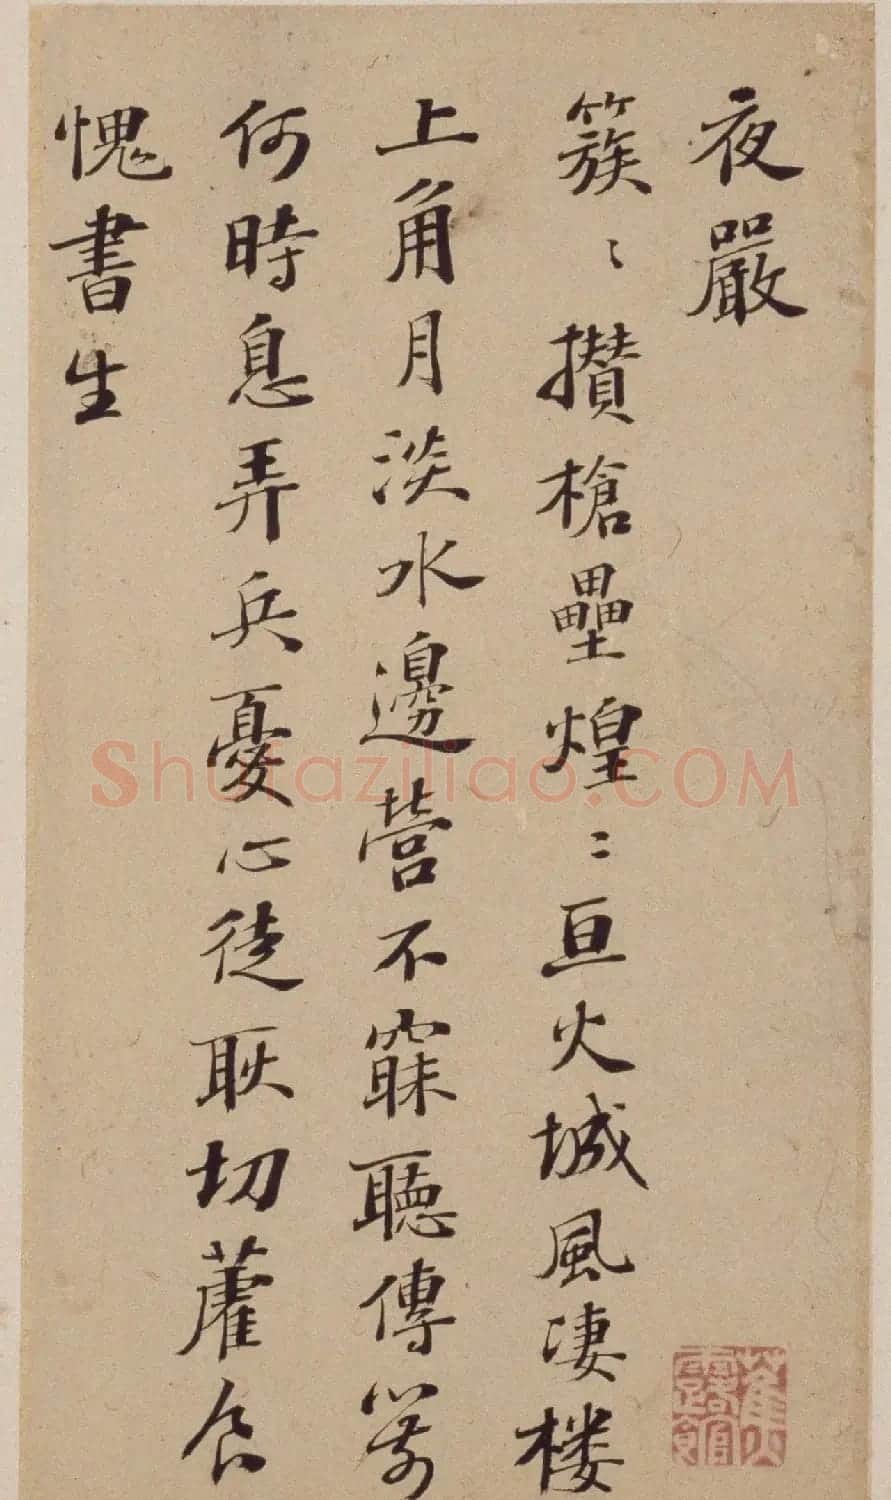 夜嚴
簇〻攢槍壘煌〻亘火城風凄楼
上角月淡水邊營不寐聽傳箭
何時息弄兵憂心徒耿切藿食
愧書生
Shufaziliao.COM